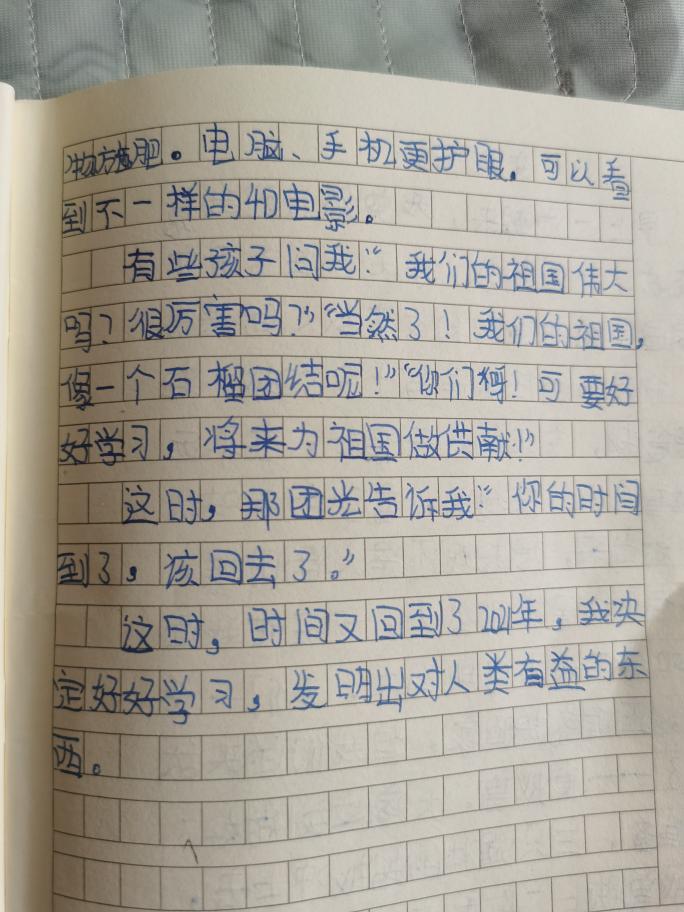 物施肥。电脑、手机更护眼。可以看
到不一样的4D电影。
有些孩子问我：“我们的祖国伟大
吗？很厉害吗？”“当然了！我们的祖国，
像一个石榴团结呢！”“你们呀！可要好
好学习，将来为祖国做供献！”
这时，那团光告诉我：“你的时间
到了，该回去了。”
这时，时间又回到了2021年，我决
定好好学习，发明出对人类有益的东
西。